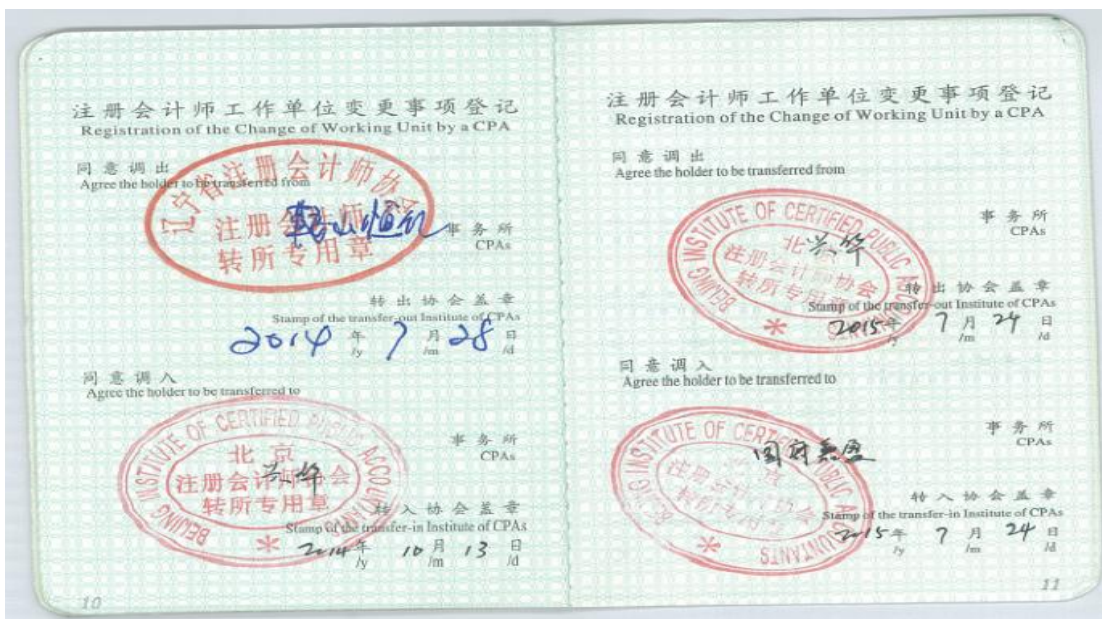 注册会计师工作单位变更事项登记
Registration of the Change of Working Unit by a CPA
同意调出
Agree the holder to be transferred from
辽宁省注册会计师协会
注册会计师
转所专用章
事务所
CPAs
转出协会盖章
Stamp of the transfer-out Institute of CPAs
2014年 7月 28日
/y /m /d
同意调入
Agree the holder to be transferred to
BEIJING INSTITUTE OF CERTIFIED PUBLIC ACCOUNTANTS
北京
注册会计师协会
转所专用章
兴华
事务所
CPAs
转入协会盖章
Stamp of the transfer-in Institute of CPAs
2014年 10月 13日
/y /m /d
10
注册会计师工作单位变更事项登记
Registration of the Change of Working Unit by a CPA
同意调出
Agree the holder to be transferred from
BEIJING INSTITUTE OF CERTIFIED PUBLIC ACCOUNTANTS
北
注册会计师协会
转所专用章
兴华
事务所
CPAs
转出协会盖章
Stamp of the transfer-out Institute of CPAs
2015年 7月 24日
/y /m /d
同意调入
Agree the holder to be transferred to
BEIJING INSTITUTE OF CERTIFIED PUBLIC ACCOUNTANTS
注册会计师协会
转所专用章
国府嘉盈
事务所
CPAs
转入协会盖章
Stamp of the transfer-in Institute of CPAs
2015年 7月 24日
/y /m /d
11